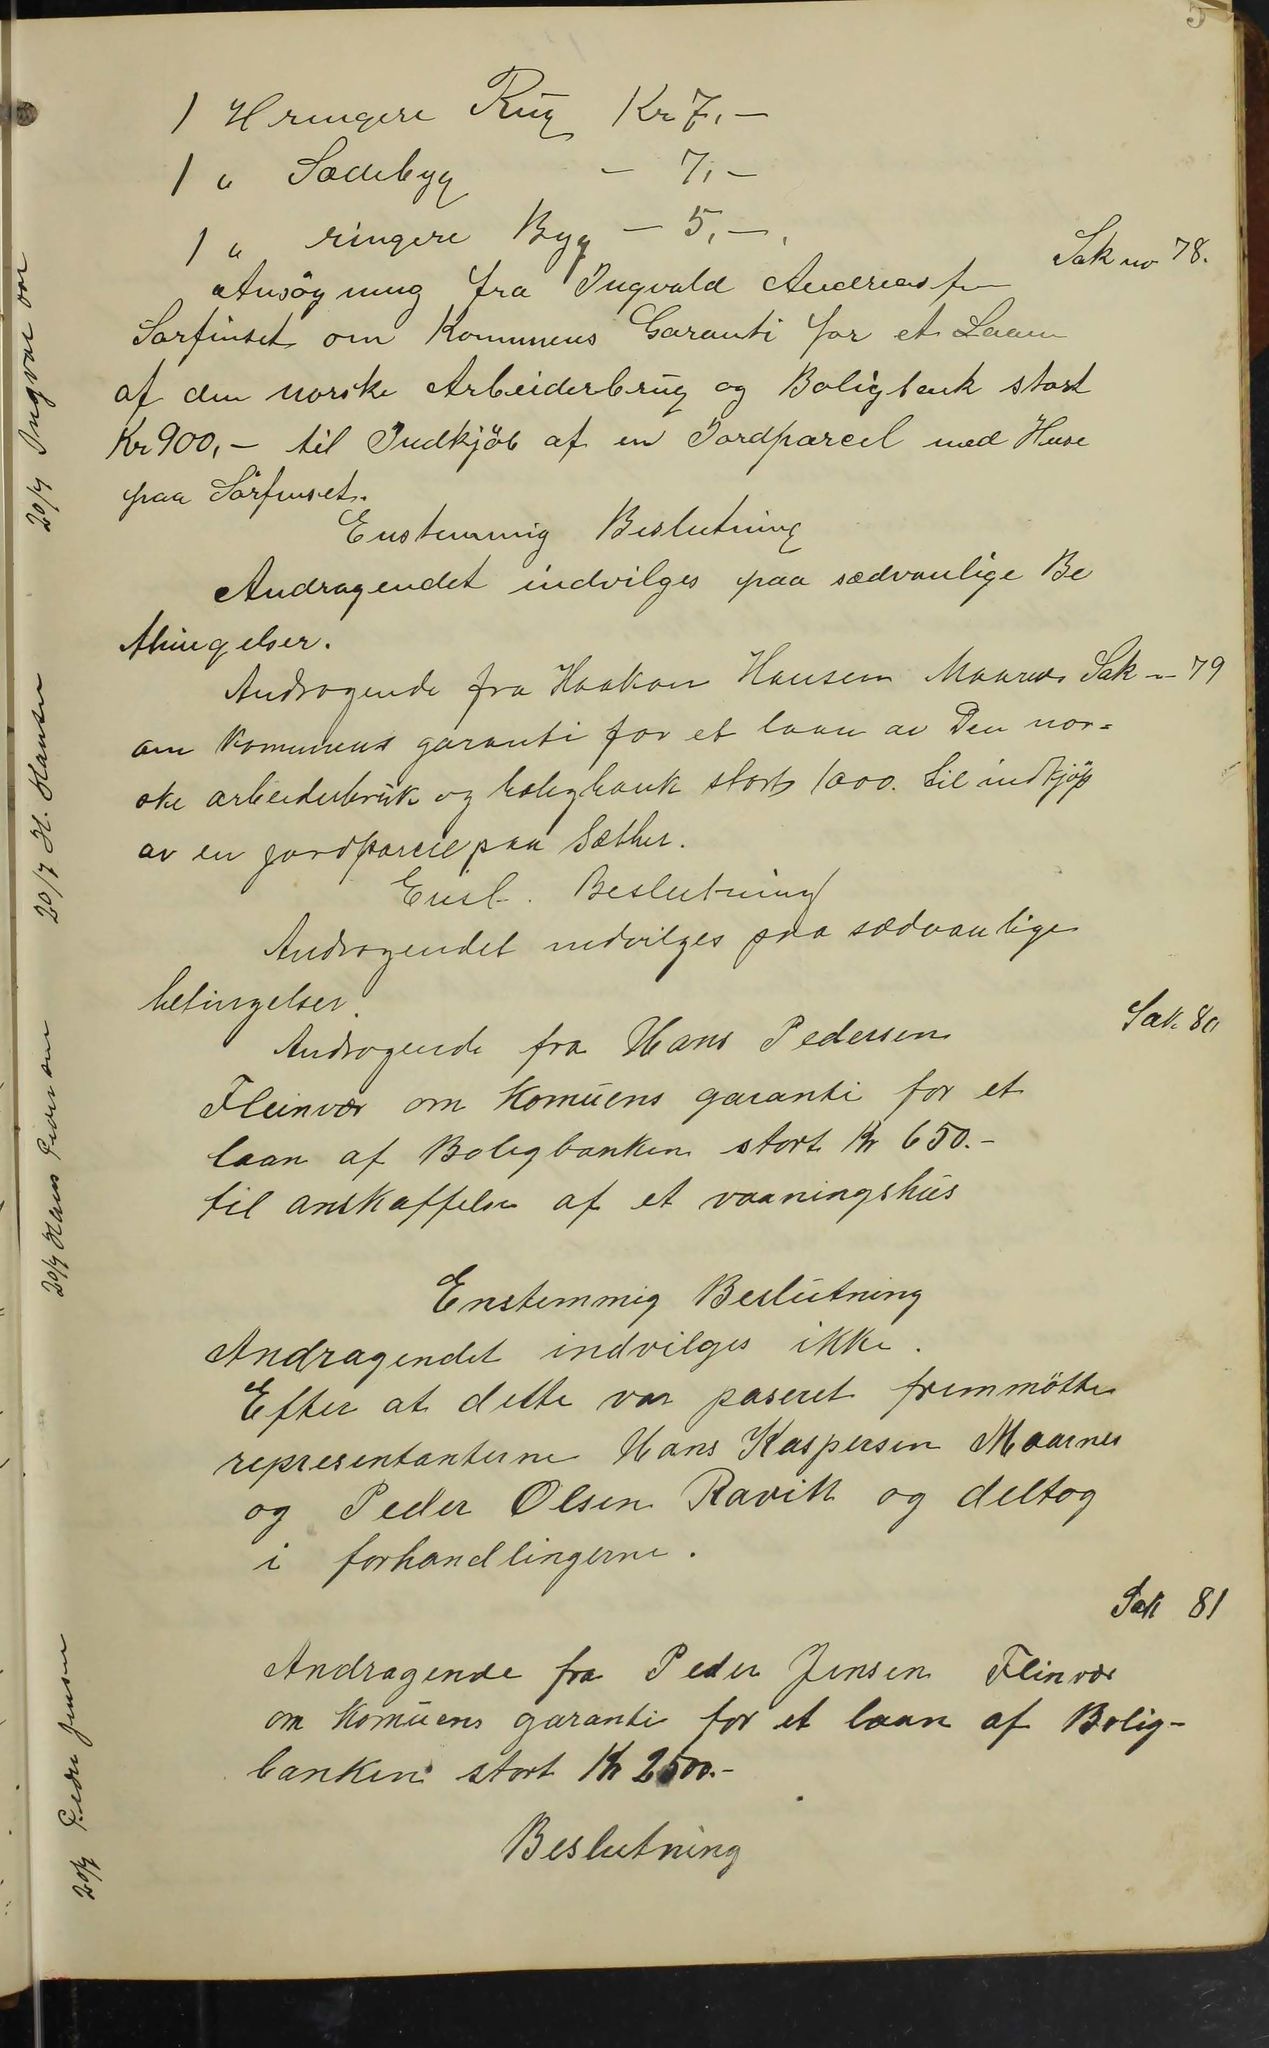 5
1 H ringere Rug Kr 7,-
1 " Sædebyg - 7,-
1 " ringere Byg - 5,-.
Sak no 78.
Ansøgning fra Ingvald Andreas
Sørfinset om Kommunens Garanti for et Laan
af den norske Arbeiderbrug og Boligbank stort
Kr 900,- til Indkjöb af en Jordparcel med Huse
paa Sörfinset.
Enstemmig Beslutning
Andragendet indvilges paa sædvanlige Be
thingelser.
Andragende fra Haakon Hansen Maarnes Sak - 79
om kommunens garanti for et laan av Den nor=
ske arbeiderbruk og boligbank stort 1000. til indkjöp
av en jordparcel paa Sæther.
Enst. Beslutning
Andragendet indvilges paa sædvanlige
betingelser.
Sak 80
Andragende fra Hans Pedersen
Fleinvær om Komuens garanti for et
laan af Boligbanken stort Kr 650.-
til anskaffelse af et vaaningshus
Enstemmig Beslutning
Andragendet indvilges ikke.
Efter at dette var paseret fremmötte
representanterne Hans Kaspersen Maarnes
og Peder Olsen Ravik og deltog
i forhandlingerne.
Sak 81
Andragende fra Peder Jensen Flinvær
om Komuens garanti for et laan af Bolig-
banken stort Kr 2500.-
Beslutning
20/7 Ingvar
20/7 H. Hansen
20/7 Hans Pedersen
20/7 Peder Jensen